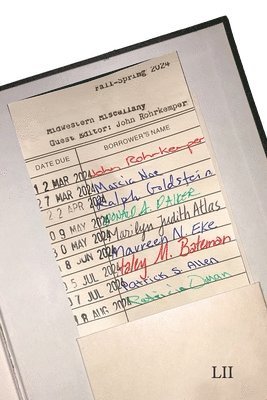 Fall-Spring 2024
Midwestern Miscellany
Guest Editor: John Rohrkemper
DATE DUE
BORROWER'S NAME
12 MAR 2024 John Rohrkemper
27 MAR 2024 Marcia Noe
22 APR 2024 Ralph Goldstein
09 MAY 2024 Ronald A. PALKER
30 MAY 2024 Marilyn Judith Atlas
18 JUN 2024 Maureen N. Eke
05 JUL 2024 Haley M. Bateman
07 JUL 2024 Patrick S. Allen
18 AUG 2024 Patricia Oman
LII